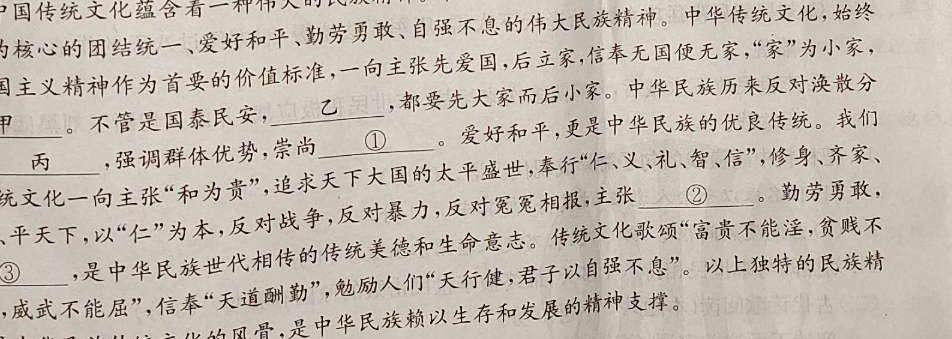 中国传统文化蕴含着一种伟大的民族精
为核心的团结统一、爱好和平、勤劳勇敢、自强不息的伟大民族精神。中华传统文化,始终
国主义精神作为首要的价值标准,一向主张先爱国,后立家,信奉无国便无家,“家”为小家,
甲 。不管是国泰民安, 乙 ,都要先大家而后小家。中华民族历来反对涣散分
丙 ,强调群体优势,崇尚 ① 。爱好和平,更是中华民族的优良传统。我们
统文化一向主张“和为贵”,追求天下大国的太平盛世,奉行“仁、义、礼、智、信”,修身、齐家、
、平天下,以“仁”为本,反对战争,反对暴力,反对冤冤相报,主张 ② 。勤劳勇敢,
③ ,是中华民族世代相传的传统美德和生命意志。传统文化歌颂“富贵不能淫,贫贱不
,威武不能屈”,信奉“天道酬勤”,勉励人们“天行健,君子以自强不息”。以上独特的民族精
文化的风骨,是中华民族赖以生存和发展的精神支撑。